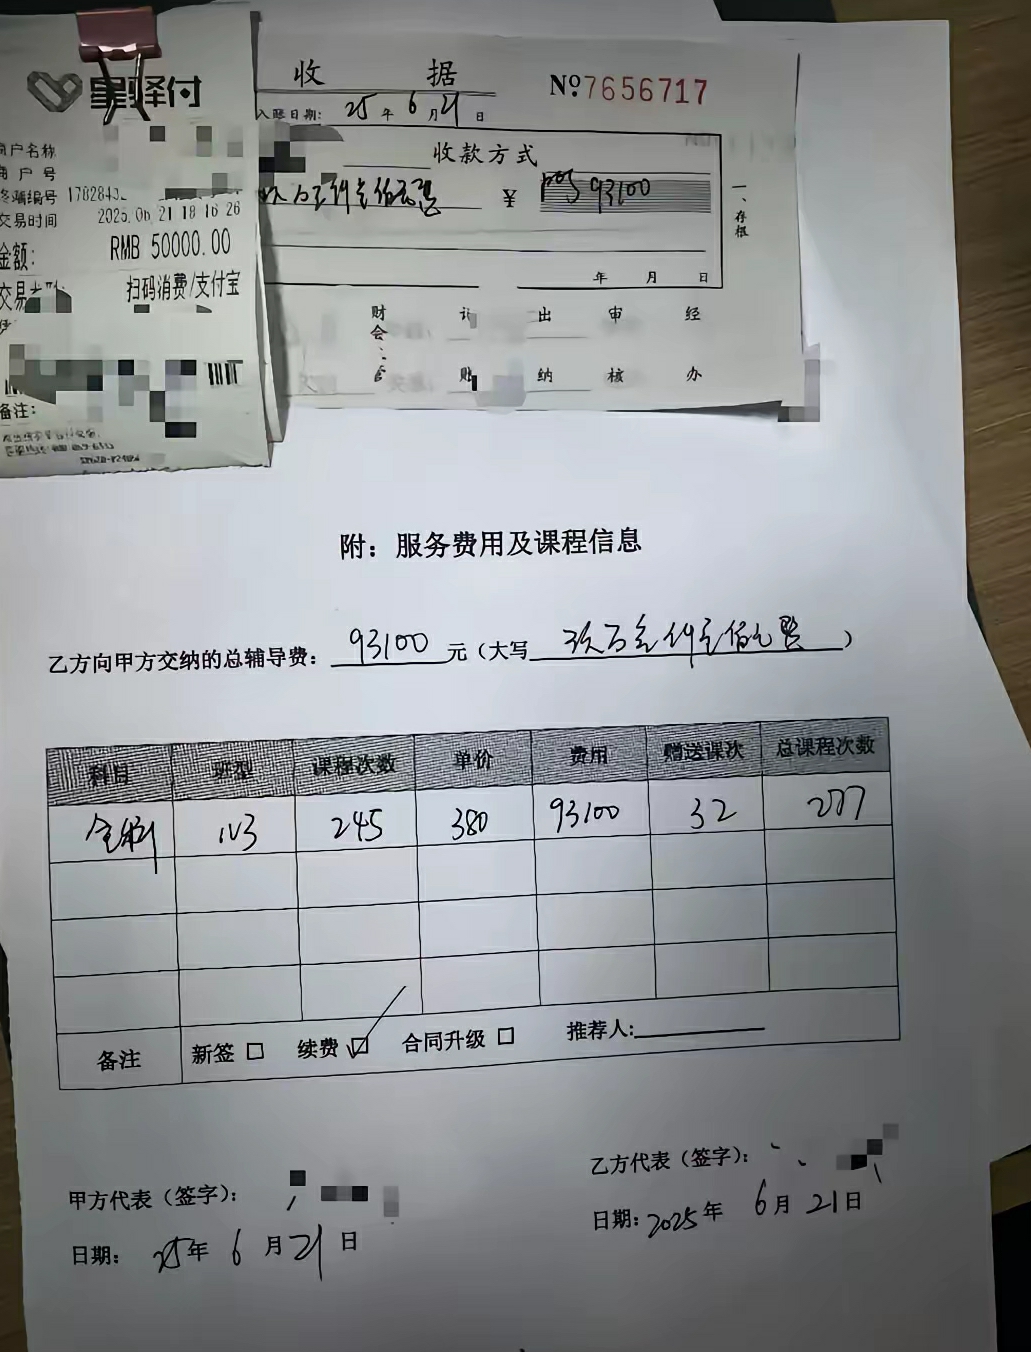 星驿付
商户名称
商户号
终端编号 1782843
交易时间
2025.06.21 18:16:26
金额:
RMB 50000.00
扫码消费/支付宝
备注:
收据
№7656717
入账日期: 25年6月21日
收款方式
玖万叁仟壹佰元整 ¥ POS 93100
一、存根
年 月 日
财会主管
记账
出纳
审核
经办
附：服务费用及课程信息
乙方向甲方交纳的总辅导费：93100元（大写 玖万叁仟壹佰元整）
科目 班型 课程次数 单价 费用 赠送课次 总课程次数
全科 1V3 245 380 93100 32 277
备注 新签 □ 续费 ☑ 合同升级 □ 推荐人:
甲方代表（签字）：
日期： 25年6月21日
乙方代表（签字）：
日期: 2025年6月21日